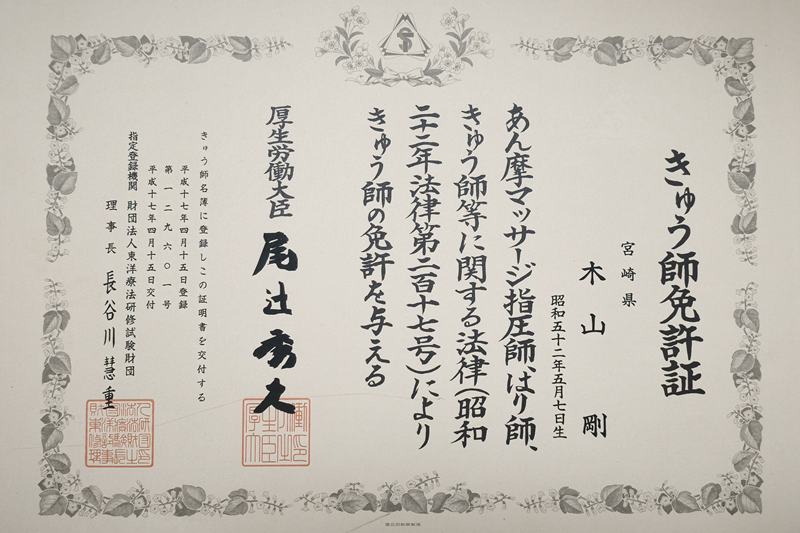 きゅう師免許証
宮崎県
木山 剛
昭和五十二年五月七日生
あん摩マッサージ指圧師、はり師、
きゅう師等に関する法律(昭和
二十二年法律第二百十七号)により
きゅう師の免許を与える
厚生労働大臣 尾辻秀久
きゅう師名簿に登録しこの証明書を交付する
平成十七年四月十五日登録
第一二九六〇一号
平成十七年四月十五日交付
指定登録機関 財団法人東洋療法研修試験財団
理事長 長谷川慧重